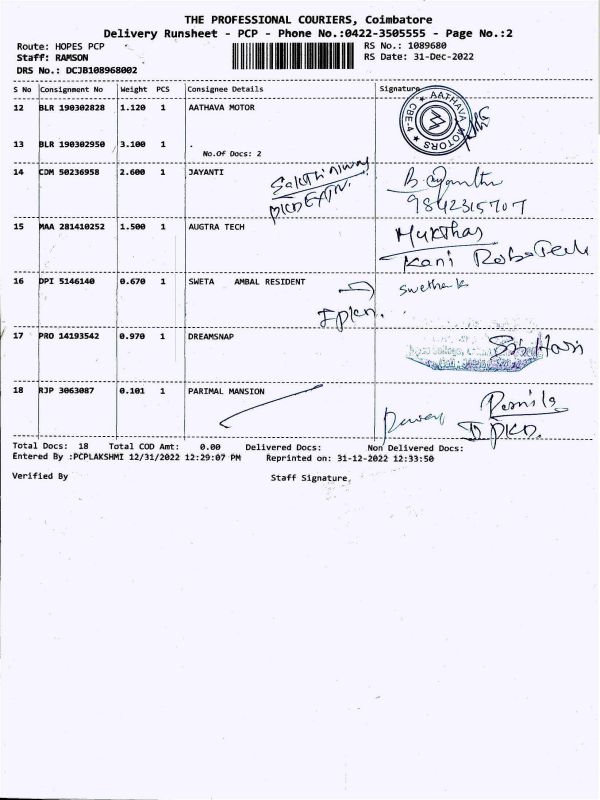 THE PROFESSIONAL COURIERS, Coimbatore
Delivery Runsheet - PCP - Phone No.:0422-3505555 - Page No.:2
Route: HOPES PCP RS No.: 1089680
Staff: RAMSON RS Date: 31-Dec-2022
DRS No.: DCJB108968002
S No Consignment No Weight PCS Consignee Details Signature
12 BLR 190302828 1.120 1 AATHAVA MOTOR
AATHAVA MOTORS CBE-4
13 BLR 190302950 3.100 1 .
No.Of Docs: 2
14 CDM 50236958 2.600 1 JAYANTI
9842315707
15 MAA 281410252 1.500 1 AUGTRA TECH
Mukthar
Kani RoboTech
16 DPI 5146140 0.670 1 SWETA AMBAL RESIDENT
Swetha k
17 PRO 14193542 0.970 1 DREAMSNAP
Sri Hari
18 RJP 3063087 0.101 1 PARIMAL MANSION
Total Docs: 18 Total COD Amt: 0.00 Delivered Docs: Non Delivered Docs:
Entered By :PCPLAKSHMI 12/31/2022 12:29:07 PM Reprinted on: 31-12-2022 12:33:50
Verified By Staff Signature